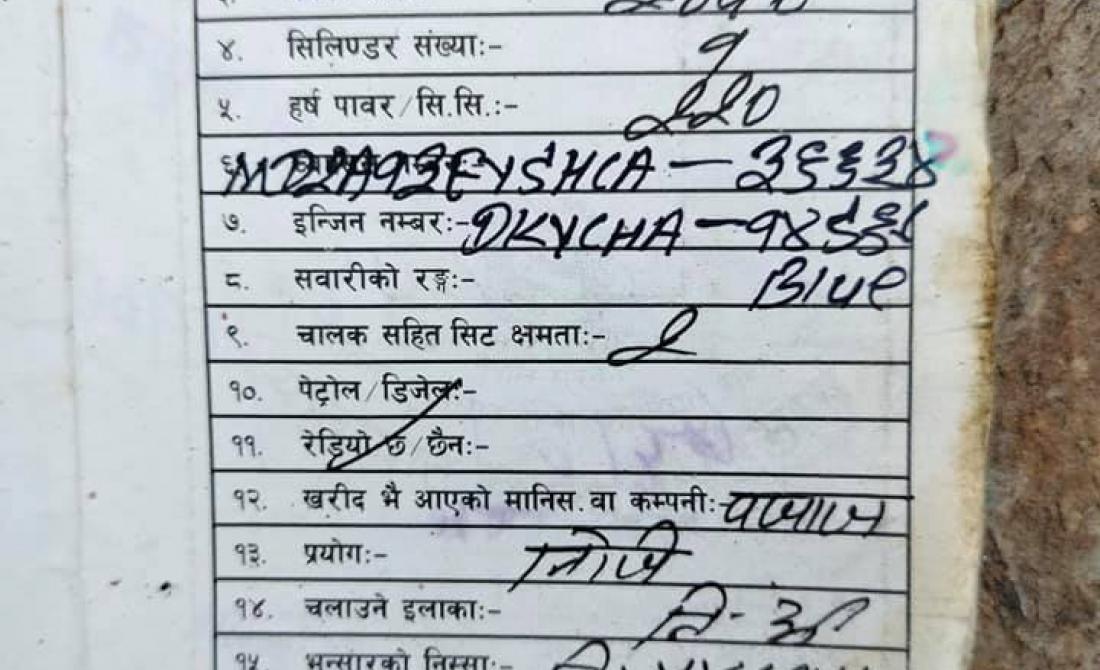 ४. सिलिण्डर संख्याः- १
५. हर्ष पावर/सि.सि.:- २२०
६. MD2A92EYSHCA - ३६६३४
७. इन्जिन नम्बरः- DKYCHA -
८. सवारीको रङ्गः- Blue
९. चालक सहित सिट क्षमताः- २
१०. पेट्रोल/डिजेलः-
११. रेडियो छ/छैनः-
१२. खरीद भै आएको मानिस. वा कम्पनीः- वजाज
१३. प्रयोगः- निजी
१४. चलाउने इलाकाः-
१५. भन्सारको निस्साः-